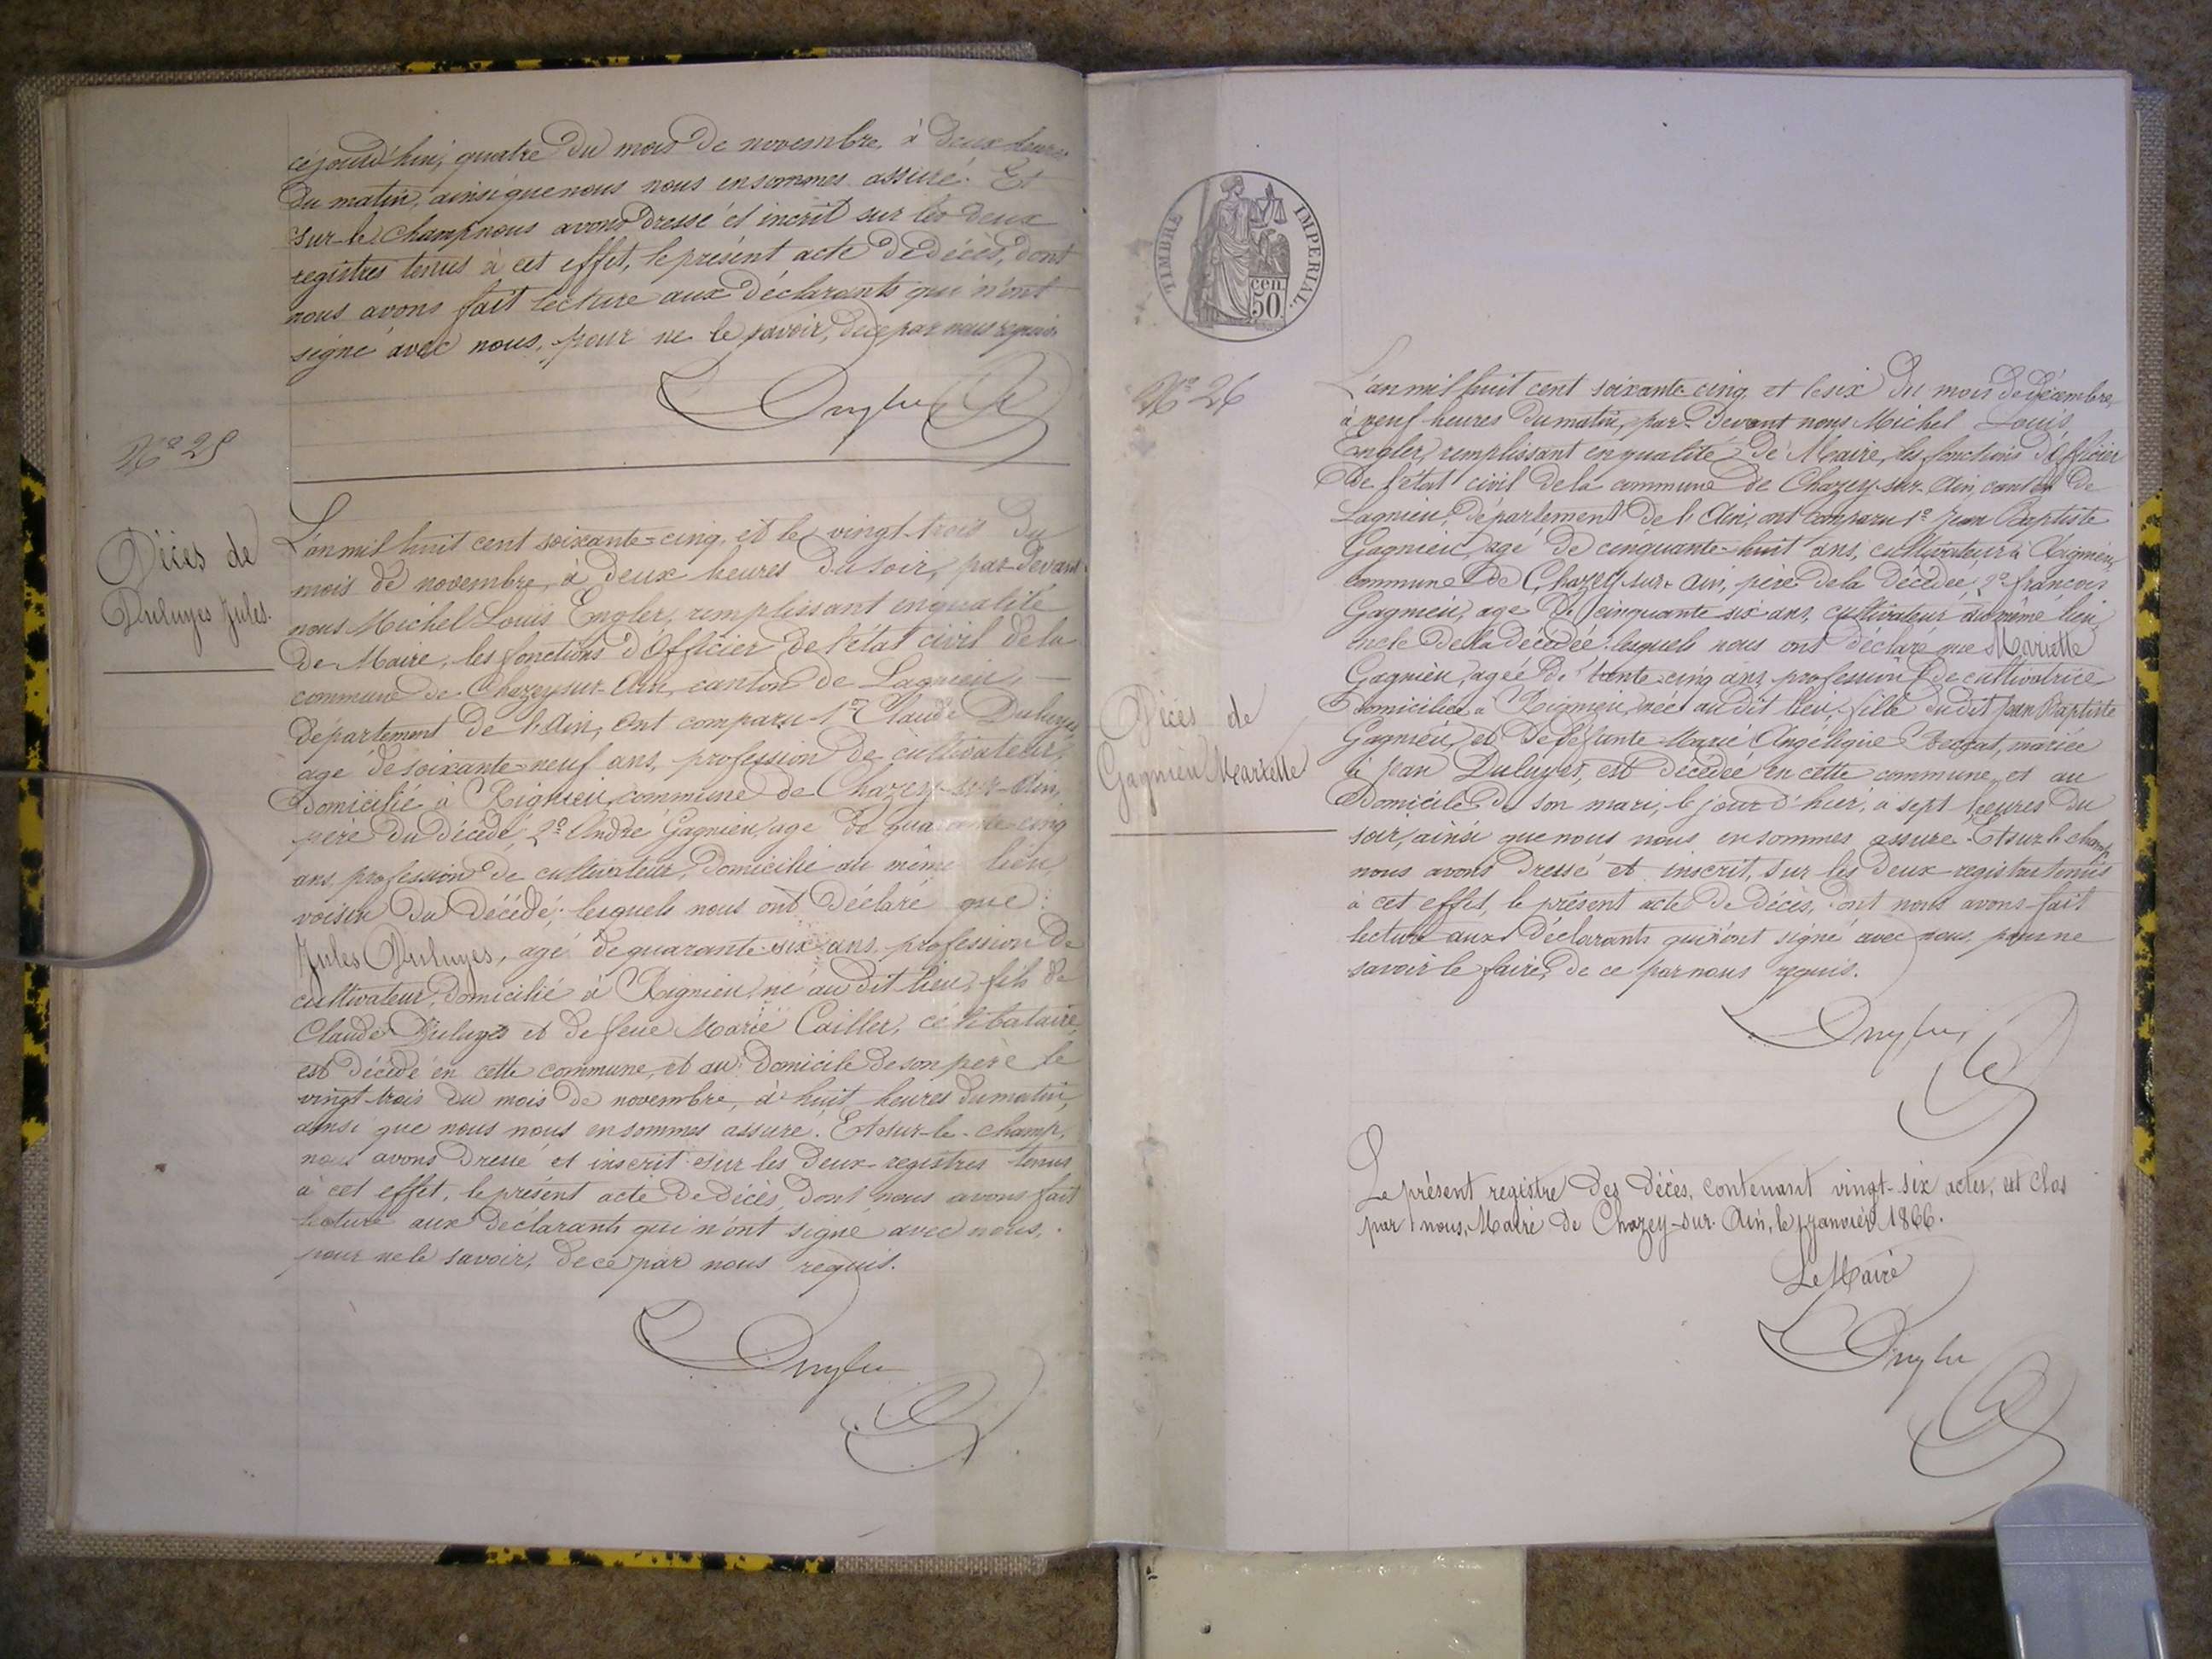 cejourd'hui, quatre du mois de novembre, à deux heures
du matin, ainsi que nous nous en sommes assuré. Et
sur-le-champ nous avons dressé et incrit sur les deux
registres tenus à cet effet, le présent acte de décès, dont
nous avons fait lecture aux déclarants qui n'ont
signé avec nous, pour ne le savoir, de ce par nous requis.
Engler
N° 25
Décès de
Duluyes Jules.
L'an mil huit cent soixante-cinq, et le vingt-trois du
mois de novembre, à deux heures du soir, par-devant
nous Michel Louis Engler, remplissant en qualité
de Maire, les fonctions d'Officier de l'état civil de la
commune de Chazey-sur-Ain, canton de Lagnieu,
département de l'Ain, ont comparu 1° Claude Duluyes
agé de soixante-neuf ans, profession de cultivateur,
domicilié à Rignieu, commune de Chazey-sur-Ain,
père du décédé, 2° André Gagnieu agé de quarante-cinq
ans, profession de cultivateur, domicilié au même lieu,
voisin du décédé; lesquels nous ont déclaré que:
Jules Duluyes, agé de quarante-six ans, profession de
cultivateur, domicilié à Rignieu, né au dit lieu, fils de
Claude Duluyes et de feue Marie Cailler, célibataire,
est décédé en cette commune, et au domicile de son père le
vingt-trois du mois de novembre, à huit heures du matin,
ainsi que nous nous en sommes assuré. Et sur-le-champ,
nous avons dressé et inscrit sur les deux registres tenus
à cet effet, le présent acte de décès, dont nous avons fait
lecture aux déclarants qui n'ont signé avec nous,
pour ne le savoir, de ce par nous requis.
Engler
TIMBRE IMPERIAL.
50 cen
N° 26
Décès de
Gagnieu Mariette
L'an mil huit cent soixante-cinq, et le six du mois de décembre,
à neuf heures du matin, par-devant nous Michel Louis
Engler, remplissant en qualité de Maire, les fonctions d'Officier
de l'état civil de la commune de Chazey-sur-Ain, canton de
Lagnieu, département de l'Ain, ont comparu 1° Jean Baptiste
Gagnieu, agé de cinquante-huit ans, cultivateur à Rignieu,
commune de Chazey-sur-Ain, père de la décédée; 2° françois
Gagnieu, agé de cinquante-six ans, cultivateur au même lieu,
oncle de la décédée: lesquels nous ont déclaré que Mariette
Gagnieu, agée de trente-cinq ans, profession de cultivatrice
domiciliée à Rignieu, née au dit lieu, fille du dit Jean Baptiste
Gagnieu, et de défunte Marie Angélique, mariée
à Jean Duluyes, est décédée en cette commune, et au
domicile de son mari, le jour d'hier, à sept heures du
soir, ainsi que nous nous en sommes assuré. Et sur le champ,
nous avons dressé et inscrit, sur les deux registres tenus
à cet effet, le présent acte de décès, dont nous avons fait
lecture aux déclarants qui n'ont signé avec nous, pour ne
savoir le faire, de ce par nous requis.
Engler
Le présent registre des décès, contenant vingt-six actes, est clos
par nous, Maire de Chazey-sur-Ain, le 1 janvier 1866.
Le Maire
Engler